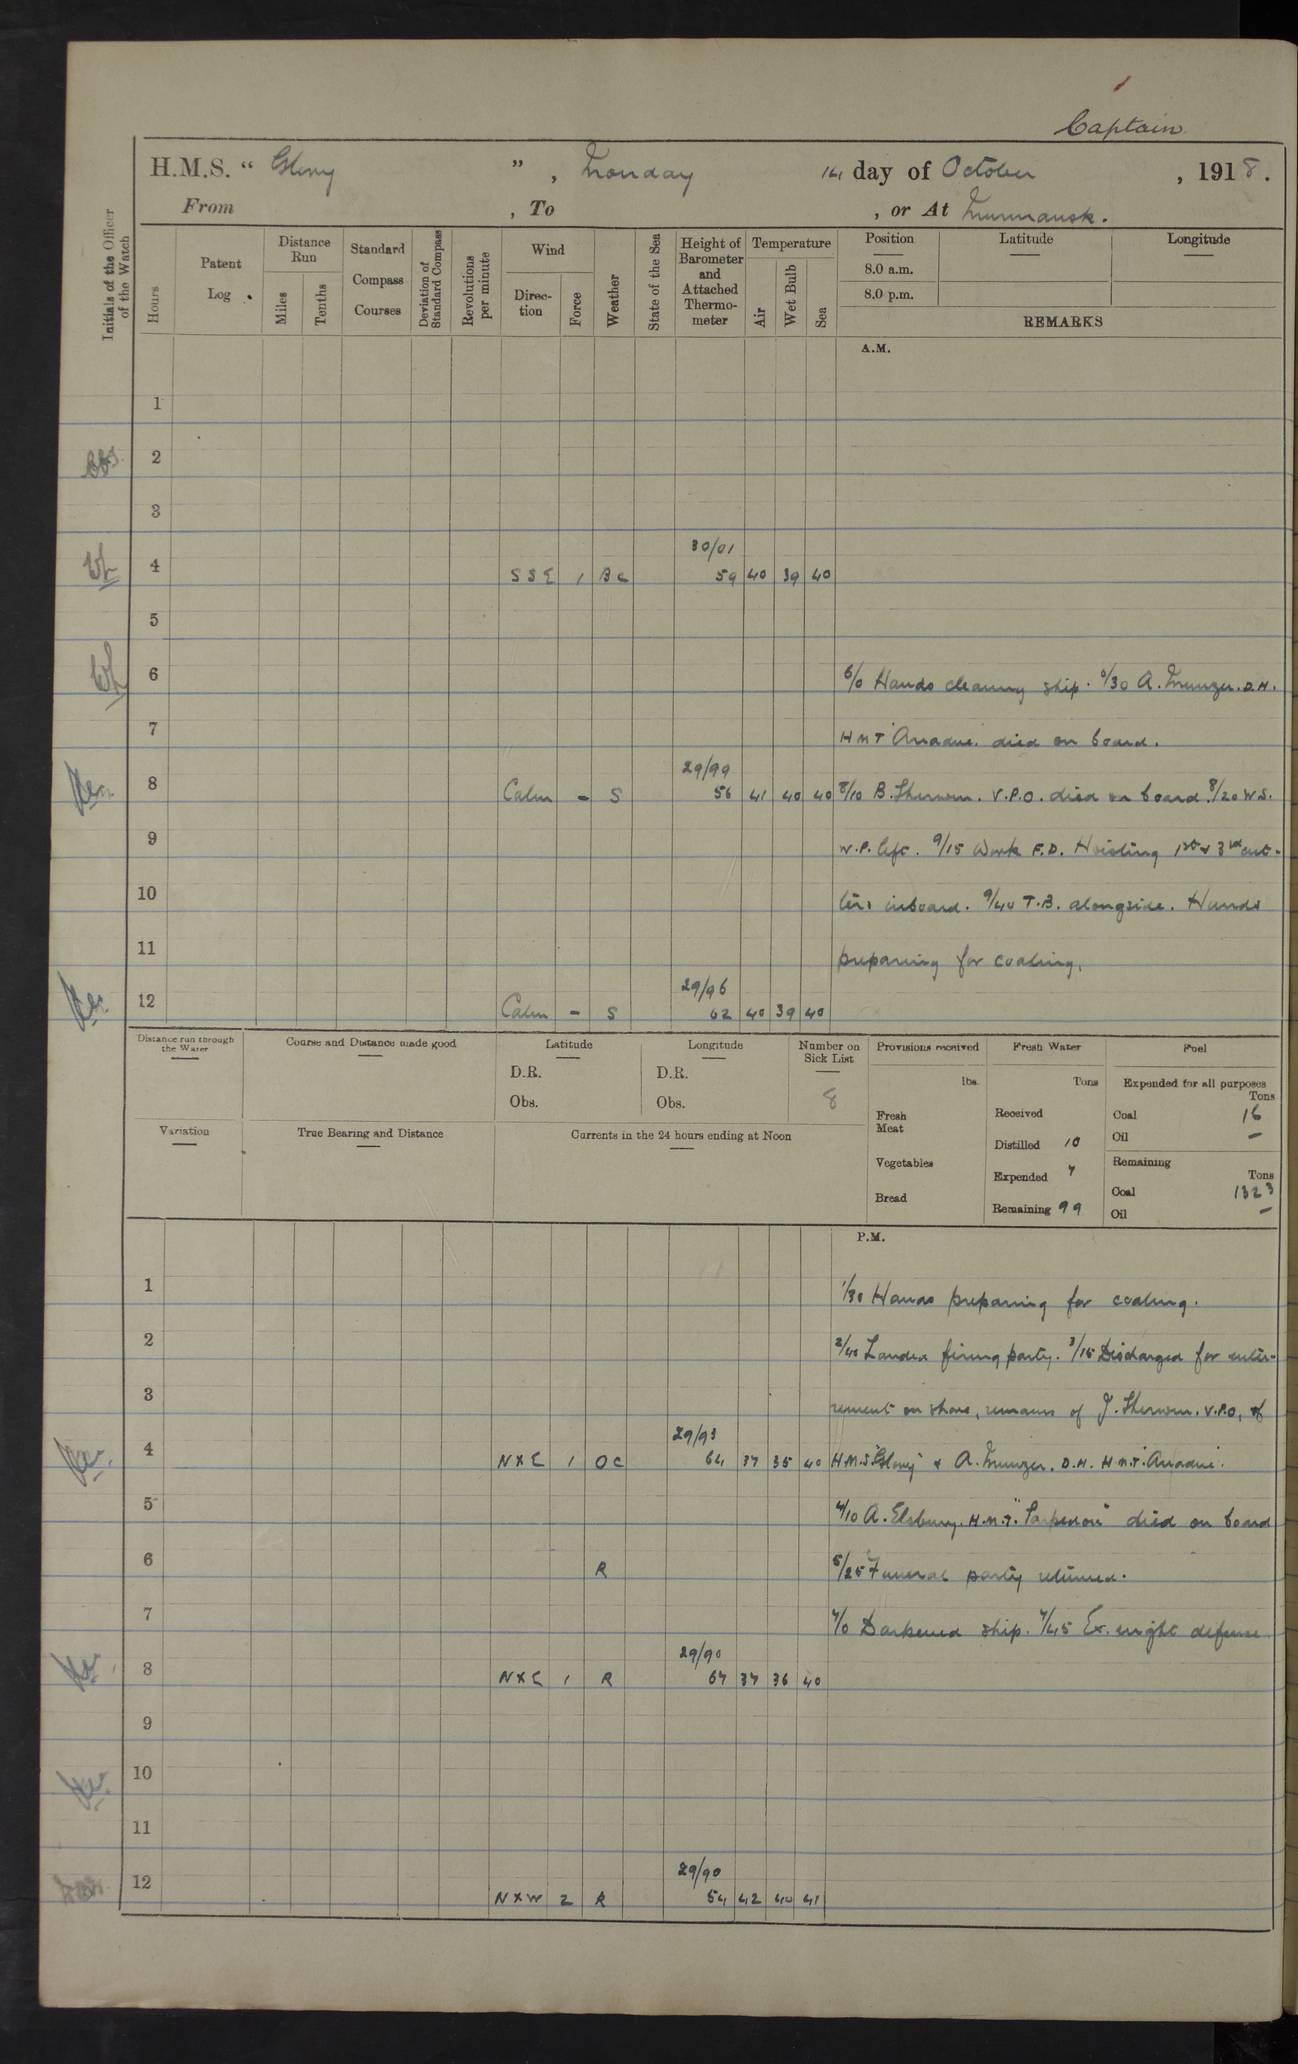 Captain
H.M.S. " Glory " , Monday 14 day of October , 1918.
From , To , or At Murmansk.
Initials of the Officer of the Watch
Hours
Patent Log
Distance Run
Miles
Tenths
Standard Compass Courses
Deviation of Standard Compass
Revolutions per minute
Wind
Direction
Force
Weather
State of the Sea
Height of Barometer and Attached Thermometer
Temperature
Air
Wet Bulb
Sea
Position
Latitude
Longitude
8.0 a.m.
8.0 p.m.
REMARKS
A.M.
1
2
3
30/01
4 SSE 1 BC 59 40 39 40
5
6 6/0 Hands cleaning ship. 6/30 A. Munger. D.H.
7 HMT "Ariadne" died on board.
29/99
8 Calm - S 56 41 40 40 8/10 B. Sherwin. V.P.O. died on board. 8/20 W.S.
9 V.P. left. 9/15 Work F.D. Hoisting 1st & 3rd cut-
10 ters inboard. 9/40 T.B. alongside. Hands
11 preparing for coaling.
29/96
12 Calm - S 62 40 39 40
Distance run through the Water
Course and Distance made good
Latitude
D.R.
Obs.
Longitude
D.R.
Obs.
Number on Sick List
8
Provisions received
lbs.
Fresh Meat
Vegetables
Bread
Fresh Water
Tons
Received
Distilled 10
Expended 7
Remaining 99
Fuel
Expended for all purposes
Tons
Coal 16
Oil -
Remaining
Tons
Coal 1323
Oil -
Variation
True Bearing and Distance
Currents in the 24 hours ending at Noon
P.M.
1 1/30 Hands preparing for coaling.
2 2/40 Landed firing party. 3/15 Discharged for inter-
3 rement on shore, remains of J. Sherwin. V.P.O. of
29/93
4 NXE 1 OC 64 37 35 40 H.M.S. "Glory" & A. Munger. D.H. H.M.T. "Ariadne".
5 4/10 A. Elsbury. H.M.T. "Sarpedon" died on board
6 R 5/25 Funeral party returned.
7 7/0 Darkened ship. 7/45 Ex. night defense
29/90
8 NXE 1 R 67 37 36 40
9
10
11
29/90
12 NXW 2 R 54 42 40 41